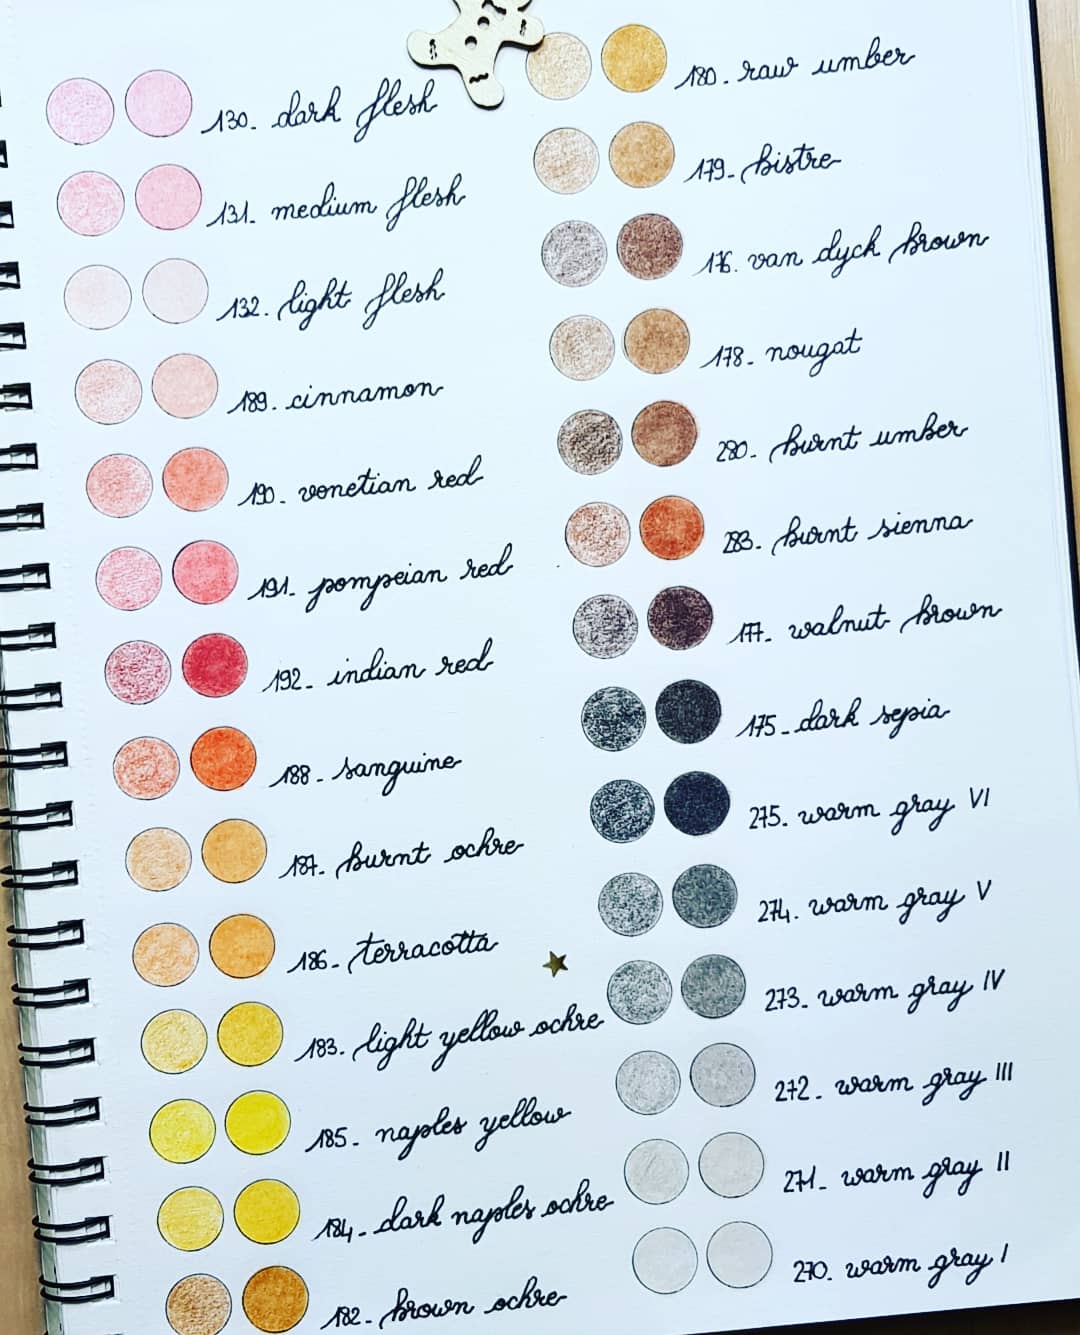 130. dark flesh
131. medium flesh
132. light flesh
189. cinnamon
190. venetian red
191. pompeian red
192. indian red
188. sanguine
187. burnt ochre
186. terracotta
183. light yellow ochre
185. naples yellow
184. dark naples ochre
182. brown ochre
180. raw umber
179. bistre
176. van dyck brown
178. nougat
280. burnt umber
283. burnt sienna
177. walnut brown
175. dark sepia
275. warm gray VI
274. warm gray V
273. warm gray IV
272. warm gray III
271. warm gray II
270. warm gray I